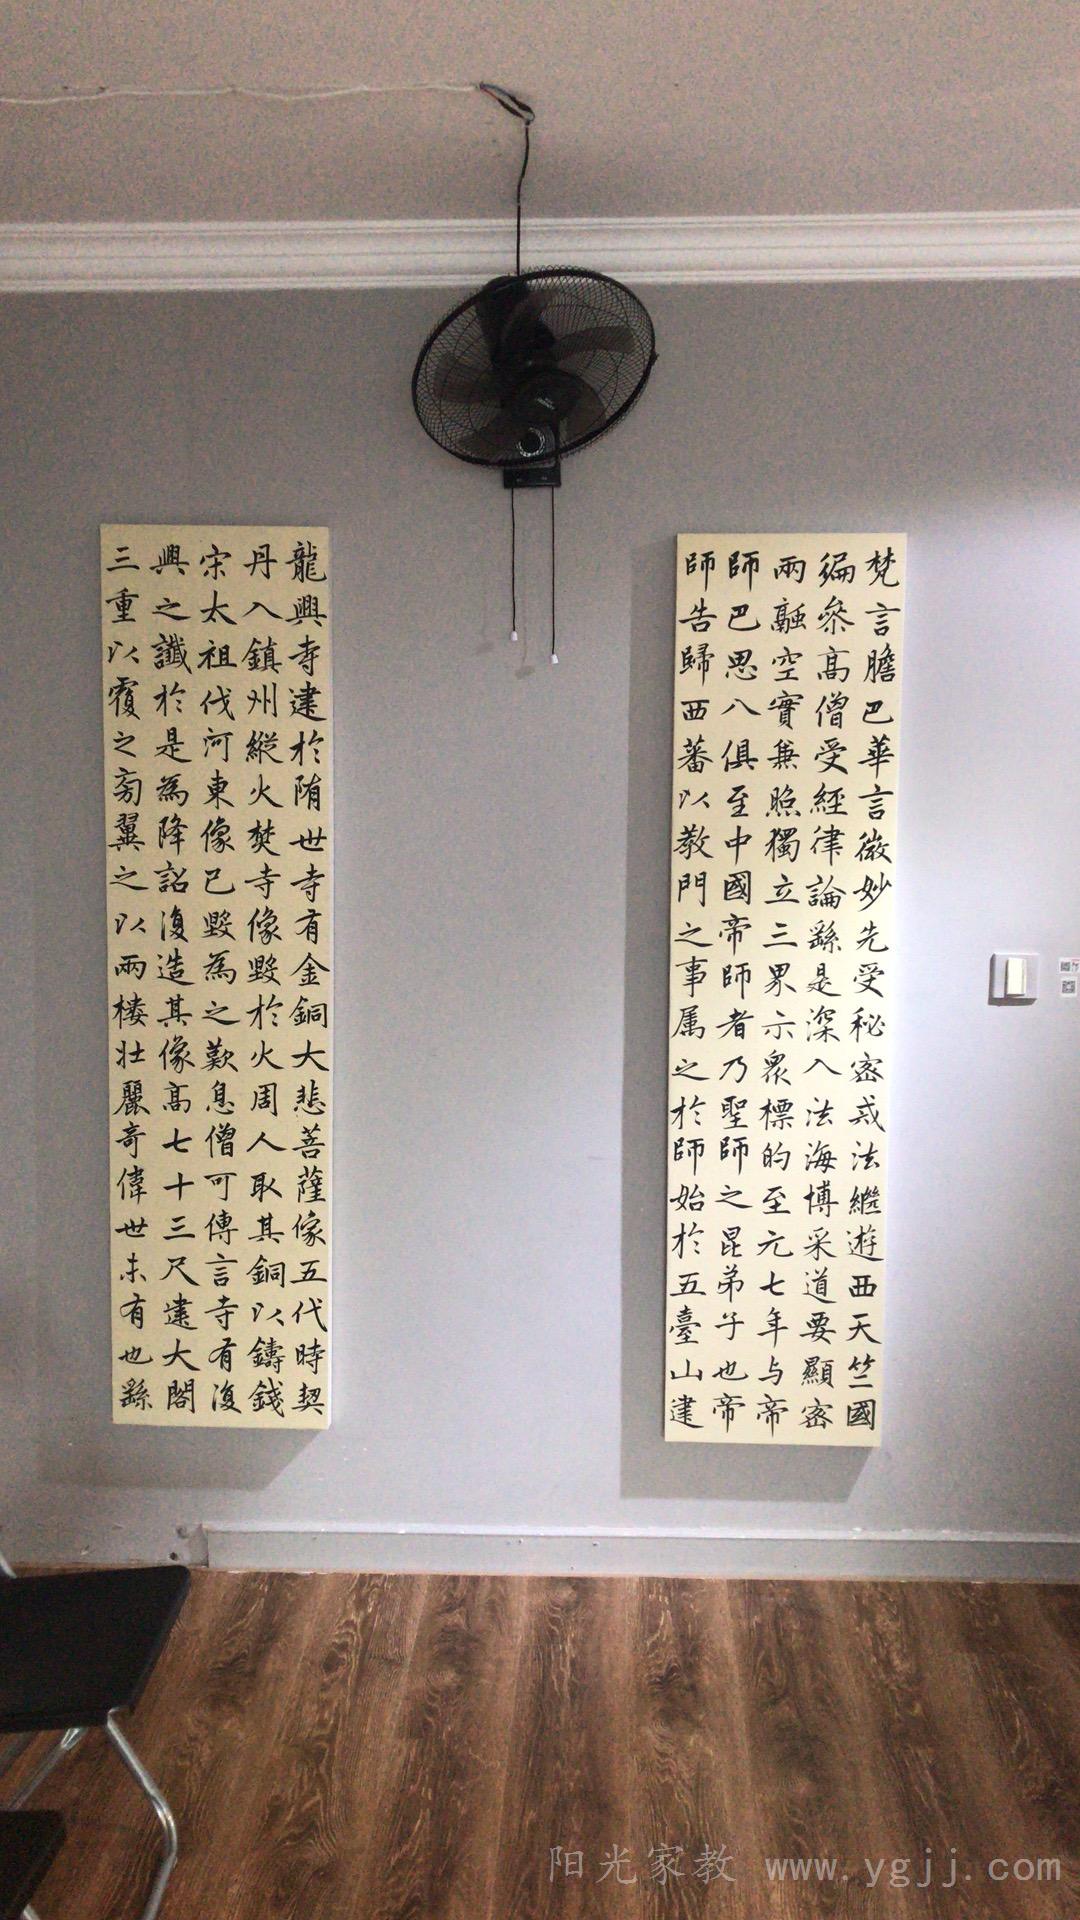 梵言膽巴華言微妙先受秘密戒法繼遊西天竺國
徧叅高僧受經律論繇是深入法海博采道要顯密
兩融空實兼照獨立三界示眾標的至元七年与帝
師巴思八俱至中國帝師者乃聖師之昆弟子也帝
師告歸西蕃以教門之事属之於師始於五臺山建
龍興寺建於隋世寺有金銅大悲菩薩像五代時契
丹入鎮州縱火焚寺像毀於火周人取其銅以鑄錢
宋太祖伐河東像已毀為之歎息僧可傳言寺有復
興之讖於是為降詔復造其像高七十三尺建大閣
三重以覆之旁翼之以兩樓壯麗奇偉世未有也繇
阳光家教 www.ygjj.com